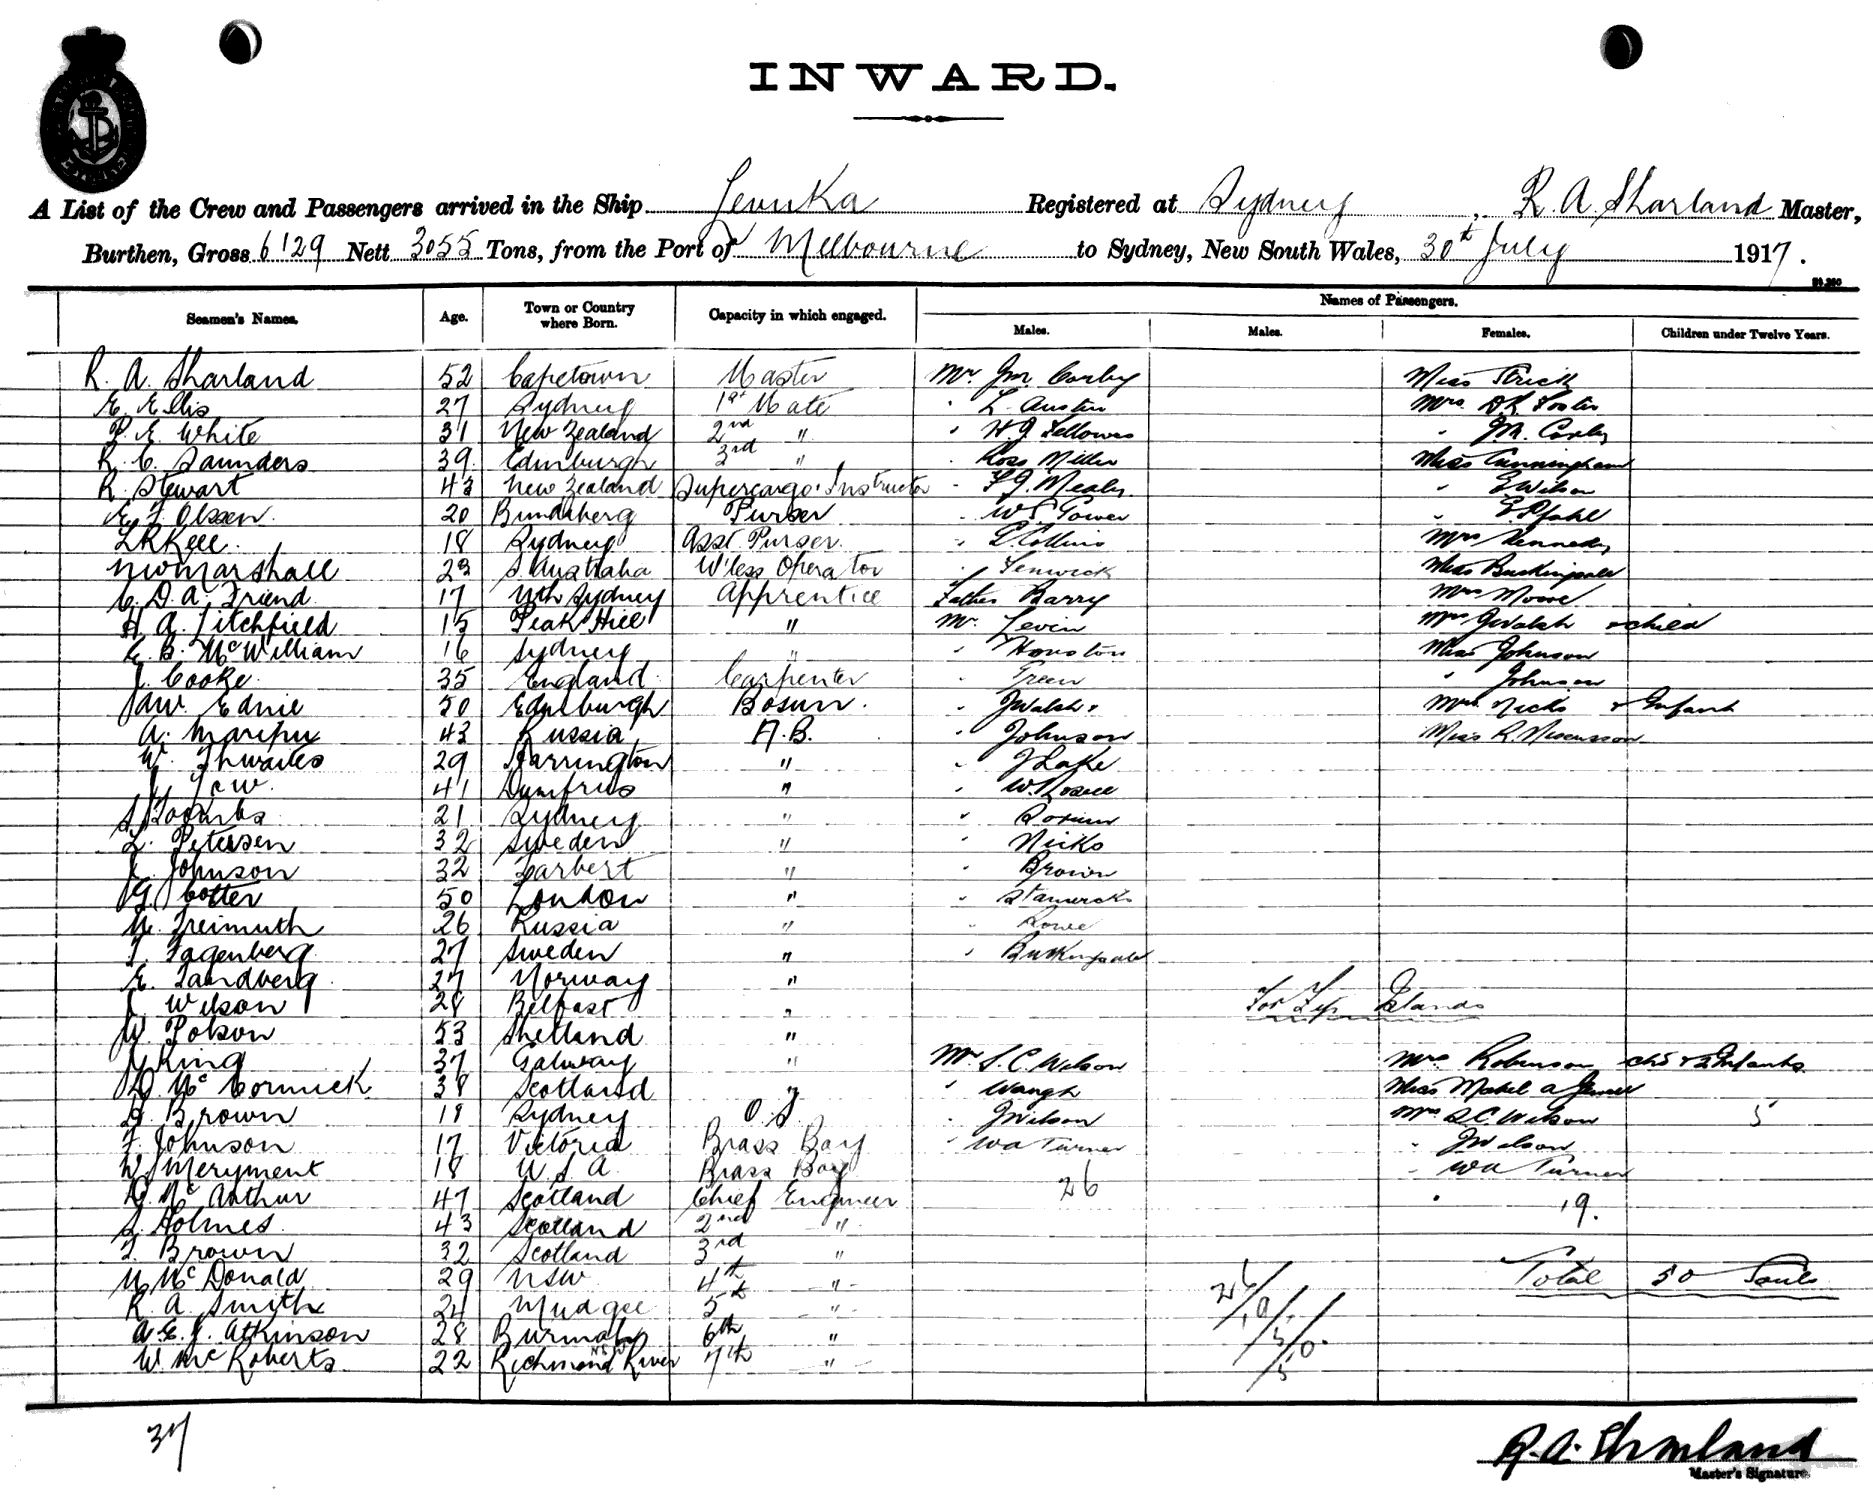 INWARD.
A List of the Crew and Passengers arrived in the Ship Levuka Registered at Sydney, R. A. Sharland Master,
Burthen, Gross 6129 Nett 3055 Tons, from the Port of Melbourne to Sydney, New South Wales, 30th July 1917.
Names of Passengers.
Seamen's Names. Age. Town or Country where Born. Capacity in which engaged. Males. Males. Females. Children under Twelve Years.
R. A. Sharland 52 Capetown Master Mr. Jm. Corby Miss Strick
E. Ellis 27 Sydney 1st Mate " L. Austin Mrs D R Foster
P. E. White 31 New Zealand 2nd " " H J Fellowes " J M. Corby
R. C. Saunders 39 Edinburgh 3rd " " Ross Miller Miss Cunningham
R. Stewart 43 New Zealand Supercargo. Instructor " F J. Mealy " E Wilson
E. F. Olssen 20 Bundaberg Purser " W S Gower " E Pfahl
L R Kell 18 Sydney Asst Purser " Collins Mrs Kennedy
N W Marshall 23 S. Australia W'less Operator " Fenwick Miss Buckingdale
C. D. A. Friend 17 Nth Sydney Apprentice Father Barry Mrs Moore
H A. Litchfield 15 Peak Hill " Mr. Levin Mrs J Walsh & child
E. B. McWilliam 16 Sydney " " Houston Miss Johnson
J. Cooke 35 England Carpenter " Green " Johnson
Jaw. Ednie 50 Edinburgh Bosun. " J Walsh Mrs. Nicks & Infant
A. 43 Russia A.B. " Johnson Miss R.
W. Thwaites 29 " " J Lake
J Yew 41 Dumfries " " W.
S. 21 Sydney " "
L. Petersen 32 Sweden " " Nicks
J. Johnson 32 Tarbert " " Brown
G. Cotter 50 London " "
M. Freimuth 26 Russia " " Rowe
T. Fagenberg 27 Sweden " " Buckingdale
E. Sandberg 27 Norway "
J. Wilson 28 Belfast "
For Fiji Islands
W Polson 53 Shetland "
J King 37 Galway " Mr S. C. Wilson Mrs. Robinson chd & 2 Infants
D. McCormick 38 Scotland " " Waugh Miss Mabel A Jewell
G. Brown 18 Sydney O.S. " J Wilson Mrs S C. Wilson 5
F. Johnson 17 Victoria Brass Boy " W A Turner " J Wilson
W Meryment 18 U S A. Brass Boy " W A Turner
D McArthur 47 Scotland Chief Engineer 26 19.
S. Holmes 43 Scotland 2nd "
T. Brown 32 Scotland 3rd "
N McDonald 29 NSW 4th " Total 50 Souls
R. A. Smith 24 Mudgee 5th " 26/19/5/50
A. E. J. Atkinson 28 Burmah 6th "
W. McRoberts 22 Richmond River NSW 7th "
37
R. A. Sharland
Master's Signature.